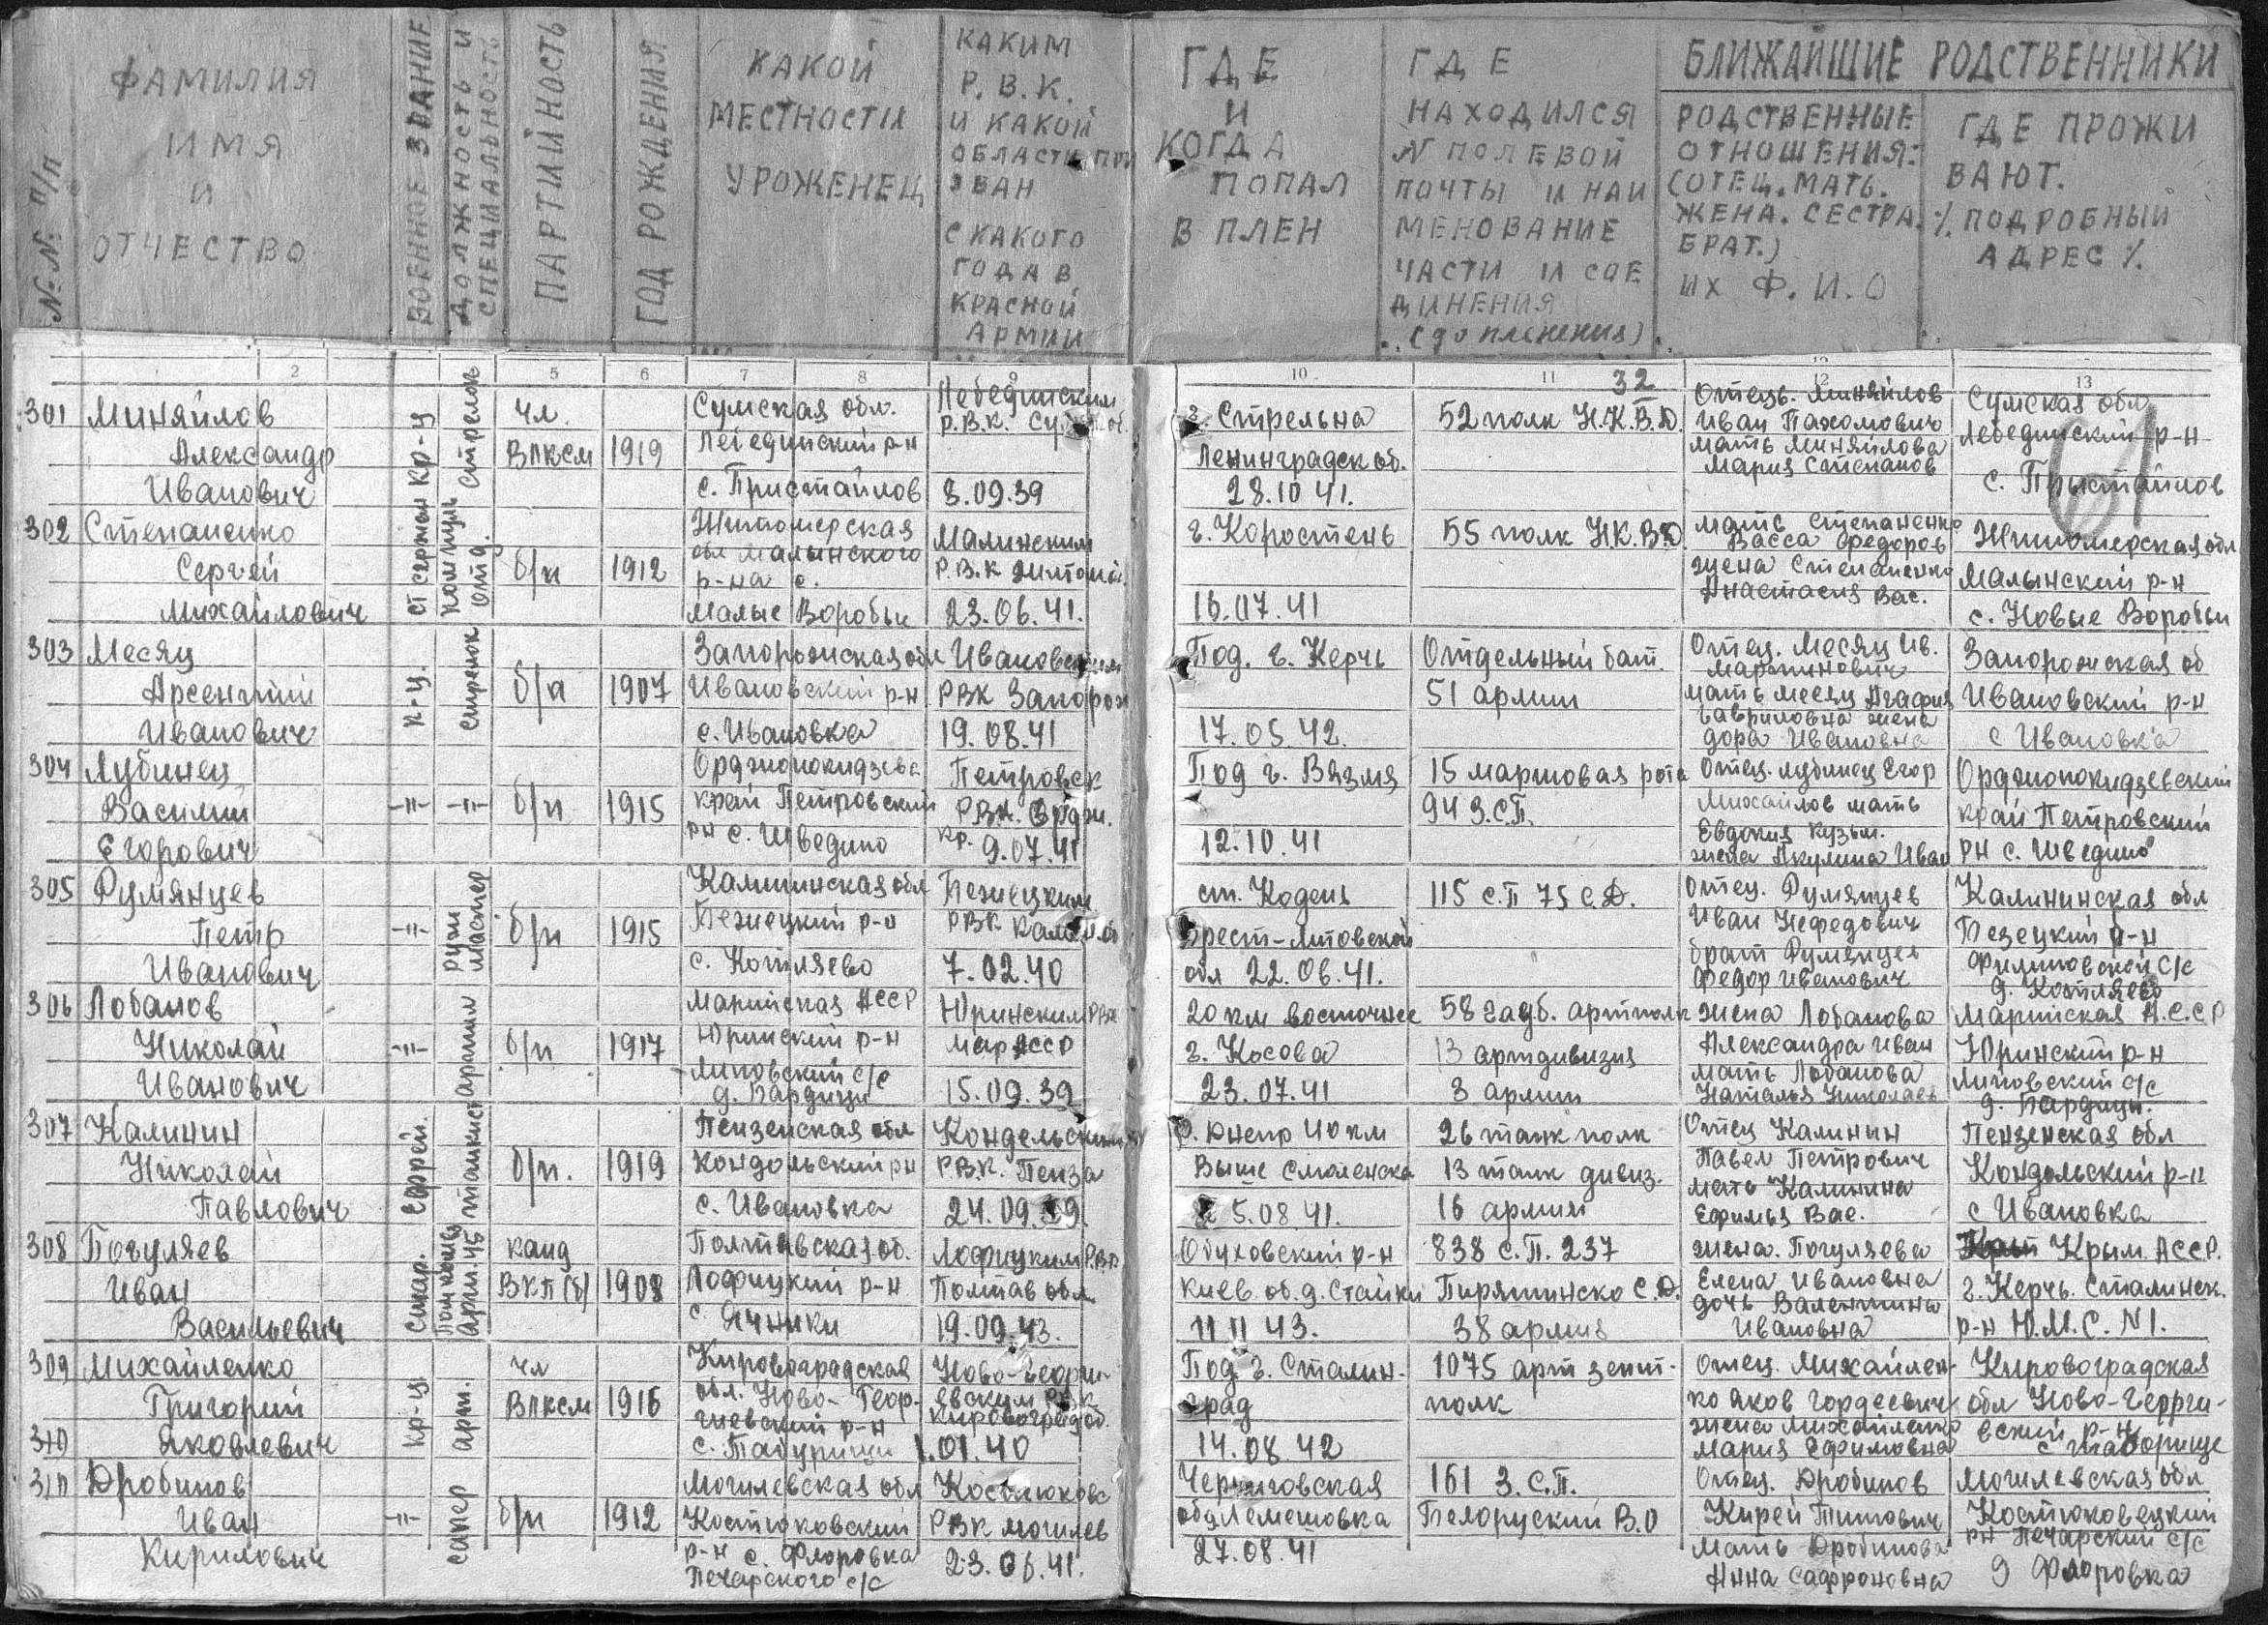 №№ п/п
ФАМИЛИЯ
ИМЯ
И
ОТЧЕСТВО
ВОЕННОЕ ЗВАНИЕ
ДОЛЖНОСТЬ И
СПЕЦИАЛЬНОСТЬ
ПАРТИЙНОСТЬ
ГОД РОЖДЕНИЯ
КАКОЙ
МЕСТНОСТИ
УРОЖЕНЕЦ
КАКИМ
Р.В.К.
И КАКОЙ
ОБЛАСТИ ПРИ
ЗВАН
С КАКОГО
ГОДА В
КРАСНОЙ
АРМИИ
ГДЕ
И
КОГДА
ПОПАЛ
В ПЛЕН
ГДЕ
НАХОДИЛСЯ
N ПОЛЕВОЙ
ПОЧТЫ И НАИ
МЕНОВАНИЕ
ЧАСТИ И СОЕ
ДИНЕНИЯ
(до пленения)
БЛИЖАЙШИЕ РОДСТВЕННИКИ
РОДСТВЕННЫЕ
ОТНОШЕНИЯ:
(ОТЕЦ. МАТЬ.
ЖЕНА. СЕСТРА.
БРАТ.)
ИХ Ф.И.О
ГДЕ ПРОЖИ
ВАЮТ.
%ПОДРОБНЫЙ
АДРЕС%.
2 5 6 7 8 9 10 11 12 13
32
61
301 Миняйлов
Александр
Иванович
кр-ц
стрелок
чл.
ВЛКСМ
1919
Сумская обл.
Лебединский р-н
с. Пристайлов
Лебединским
Р.В.К.
3.09.39
г. Стрельна
Ленинградск об.
28.10 41.
52 полк Н.К.В.Д.
Отец. Миняйлов
Иван Пахомович
мать Миняйлова
Мария Степанов
Сумская обл
Лебединский р-н
с. Пристайлов
302 Степаненко
Сергей
Михайлович
ст сержан
ком
отд.
б/п
1912
Житомерская
обл Малынского
р-на с.
Малые Воробьи
Малинским
Р.В.К Житом.
23.06.41.
г. Коростень
16.07.41
55 полк Н.К.В.Д.
Мать Степаненко
Васса Федоров
жена Степаненко
Анастасия Вас.
Житомерская обл
Малынский р-н
с. Новые Воробьи
303 Месяц
Арсентий
Иванович
к-ц.
стрелок
б/п
1907
Запорожская обл
Ивановский р-н
с. Ивановка
Ивановским
РВК Запорож
19.08.41
Под. г. Керчь
17.05.42.
Отдельный бат.
51 армии
Отец. Месяц Ив.
Мартинович
мать Месяц Агафия
Гавриловна жена
Дора Ивановна
Запорожская об
Ивановский р-н
с Ивановка
304 Лубинец
Василий
Егорович
-"-
-"-
б/п
1915
Орджоникидзева
край Петровский
рн с. Шведино
Петровск
РВК. Ордж.
кр. 9.07.41
Под г. Вязмя
12.10.41
15 маршовая рота
94 З.С.П.
Отец. Лубинец Егор
Михайлов мать
Евдокия Кузьм.
жена Акулина Иван
Орджоникидзевский
край Петровский
рн с. Шведино
305 Румянцев
Петр
Иванович
-"-
руж
мастер
б/п
1915
Калининская обл
Бежецкий р-н
с. Котляево
Бежецким
РВК
7.02.40
ст. Кодень
Брест-Литовской
обл 22.06.41.
115 с.п 75 с.Д.
Отец. Румянцев
Иван Нефедович
брат Румянцев
Федор Иванович
Калининская обл
Безецкий р-н
Филиповской с/с
д. Котляево
306 Лобанов
Николай
Иванович
-"-
артил
б/п
1917
Марийская АССР
Юринский р-н
Липовский с/с
д. Бардицы
Юринским РВК
Мар АССР
15.09.39
20 км восточнее
г. Косова
23.07.41
58 гауб. артполк
13 артдивизия
3 армии
жена Лобанова
Александра Иван
мать Лобанова
Наталья Николаев
Марийская А.С.С.Р
Юринский р-н
Липовский с/с
д. Бардицы.
307 Калинин
Николай
Павлович
Ефрей.
танкист
б/п.
1919
Пензенская обл
Кондольский рн
с. Ивановка
Кондельским
Р.В.К. Пенза
24.09.39.
р. Днепр 40 км
выше Смоленска
5.08.41.
26 танк полк
13 танк дивиз.
16 армии
Отец Калинин
Павел Петрович
мать Калинина
Ефимья Вас.
Пензенская обл
Кондольский р-н
с Ивановка
308 Погуляев
Иван
Васильевич
Стар.
арт. 45
канд
ВКП(б)
1908
Полтавская об.
Лофицкий р-н
с Ячники
Лофицким Р.В.К
Полтав обл
19.09.43.
Обуховский р-н
Киев. об. д. Стайки
11 11 43.
838 с.п. 237
Пирятинско С.Д.
38 армия
жена. Погуляева
Елена Ивановна
дочь Валентина
Ивановна
Крым. АССР.
г. Керчь. Сталинск.
р-н Ю.М.С. N 1.
309 Михайленко
Григорий
310 Яковлевич
кр-ц.
арт.
чл
ВЛКСМ
1916
Кировоградская
обл. Ново-Геор-
гиевский р-н
с. Табурищи
Ново-Георги-
евским РВК
Кировоград об.
1.01.40
Под г. Сталин-
град
14.08.42
1075 арт зенит-
полк
Отец. Михайлен-
ко Яков Гордеевич
жена Михайленко
Мария Ефимовна
Кировоградская
обл Ново-Георги-
вский р-н
с Таборище
310 Дробинов
Иван
Кирилович
-"-
сапер
б/п
1912
Могилевская обл
Костюковский
р-н с. Флоровка
Печарского с/с
Костюковс
РВК Могилев
23.06.41.
Черниговская
обл Лемешовка
27.08.41
161 З.С.П.
Белоруский В.О
Отец. Дробинов
Кирей Титович
Мать Дробинова
Анна Сафроновна
Могилевская обл
Костюковецкий
рн Печарский с/с
д Флоровка